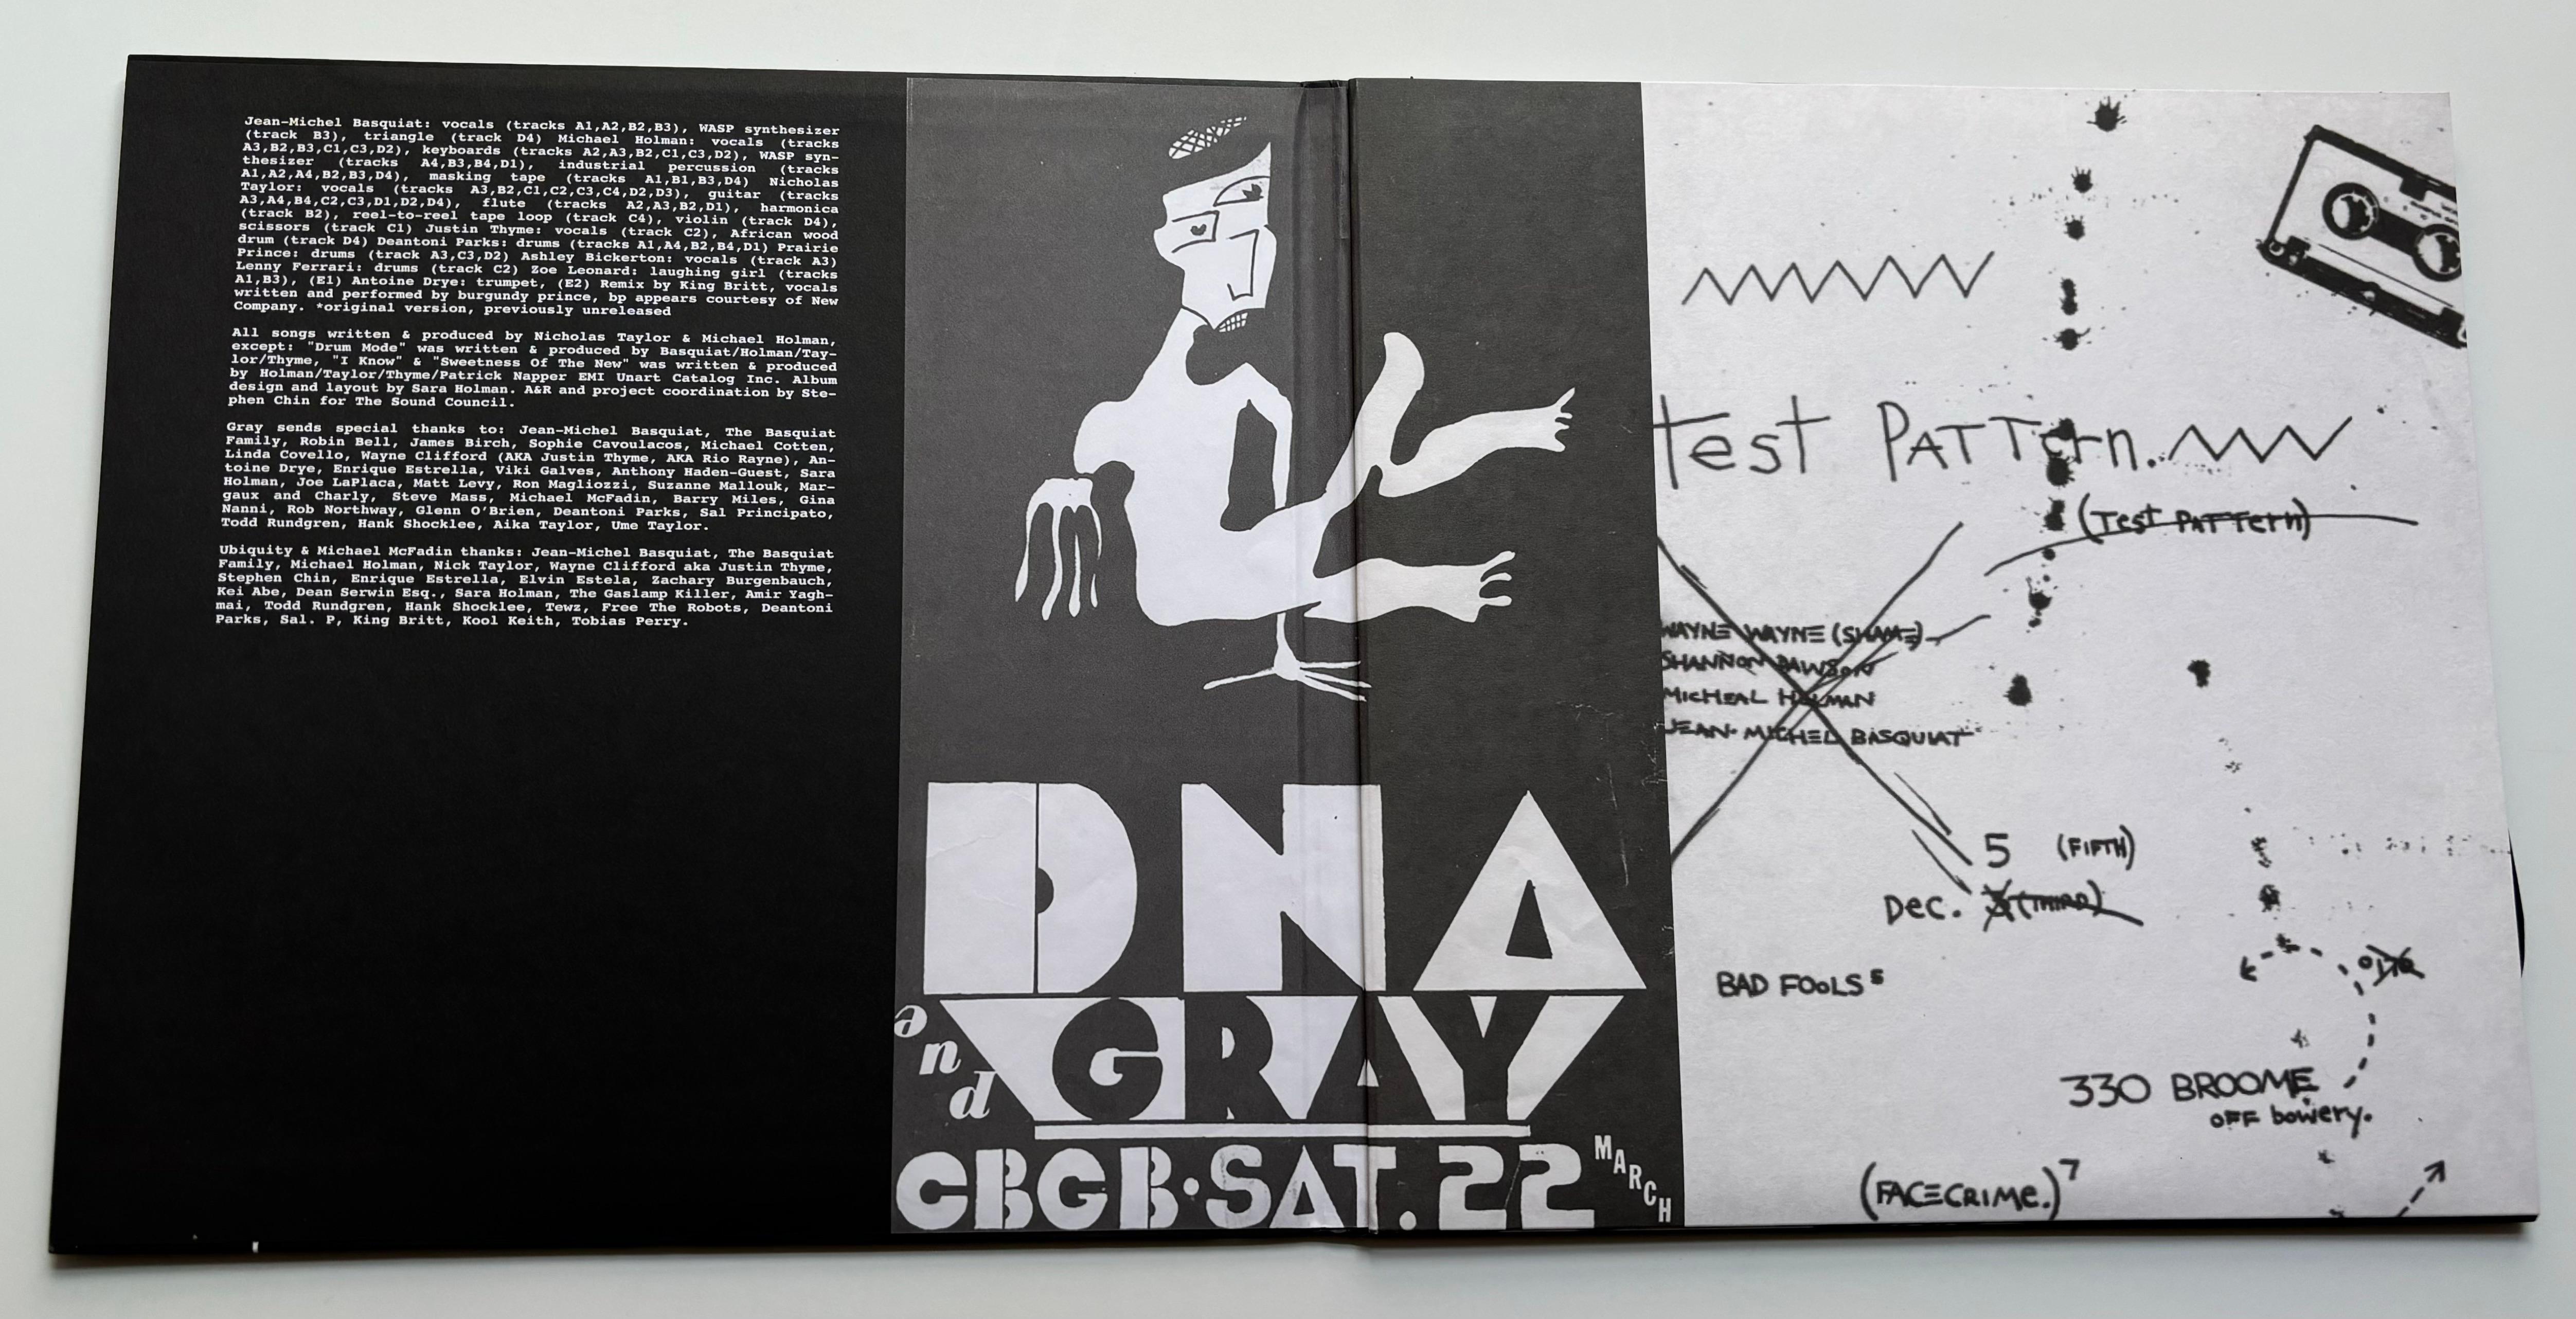 Jean-Michel Basquiat: vocals (tracks A1,A2,B2,B3), WASP synthesizer
(track B3), triangle (track D4) Michael Holman: vocals (tracks
A3,B2,B3,C1,C3,D2), keyboards (tracks A2,A3,B2,C1,C3,D2), WASP syn-
thesizer (tracks A4,B3,B4,D1), industrial percussion (tracks
A1,A2,A4,B2,B3,D4), masking tape (tracks A1,B1,B3,D4) Nicholas
Taylor: vocals (tracks A3,B2,C1,C2,C3,C4,D2,D3), guitar (tracks
A3,A4,B4,C2,C3,D1,D2,D4), flute (tracks A2,A3,B2,D1), harmonica
(track B2), reel-to-reel tape loop (track C4), violin (track D4),
scissors (track C1) Justin Thyme: vocals (track C2), African wood
drum (track D4) Deantoni Parks: drums (tracks A1,A4,B2,B4,D1) Prairie
Prince: drums (track A3,C3,D2) Ashley Bickerton: vocals (track A3)
Lenny Ferrari: drums (track C2) Zoe Leonard: laughing girl (tracks
A1,B3), (E1) Antoine Drye: trumpet, (E2) Remix by King Britt, vocals
written and performed by burgundy prince, bp appears courtesy of New
Company. *original version, previously unreleased
All songs written & produced by Nicholas Taylor & Michael Holman,
except: "Drum Mode" was written & produced by Basquiat/Holman/Tay-
lor/Thyme, "I Know" & "Sweetness Of The New" was written & produced
by Holman/Taylor/Thyme/Patrick Napper EMI Unart Catalog Inc. Album
design and layout by Sara Holman. A&R and project coordination by Ste-
phen Chin for The Sound Council.
Gray sends special thanks to: Jean-Michel Basquiat, The Basquiat
Family, Robin Bell, James Birch, Sophie Cavoulacos, Michael Cotten,
Linda Covello, Wayne Clifford (AKA Justin Thyme, AKA Rio Rayne), An-
toine Drye, Enrique Estrella, Viki Galves, Anthony Haden-Guest, Sara
Holman, Joe LaPlaca, Matt Levy, Ron Magliozzi, Suzanne Mallouk, Mar-
gaux and Charly, Steve Mass, Michael McFadin, Barry Miles, Gina
Nanni, Rob Northway, Glenn O'Brien, Deantoni Parks, Sal Principato,
Todd Rundgren, Hank Shocklee, Aika Taylor, Ume Taylor.
Ubiquity & Michael McFadin thanks: Jean-Michel Basquiat, The Basquiat
Family, Michael Holman, Nick Taylor, Wayne Clifford aka Justin Thyme,
Stephen Chin, Enrique Estrella, Elvin Estela, Zachary Burgenbauch,
Kei Abe, Dean Serwin Esq., Sara Holman, The Gaslamp Killer, Amir Yagh-
mai, Todd Rundgren, Hank Shocklee, Tewz, Free The Robots, Deantoni
Parks, Sal. P, King Britt, Kool Keith, Tobias Perry.
DNA
and
GRAY
CBGB·SAT. 22 MARCH
test PATTern.
(Test PATTern)
WAYNE WAYNE (SHAME)
SHANNON DAWSON
MICHEAL HOLMAN
JEAN-MICHEL BASQUIAT
5 (FIFTH)
Dec. 3 (THIRD)
BAD FOOLS 5
330 BROOME
OFF bowery.
(FACECRIME.) 7